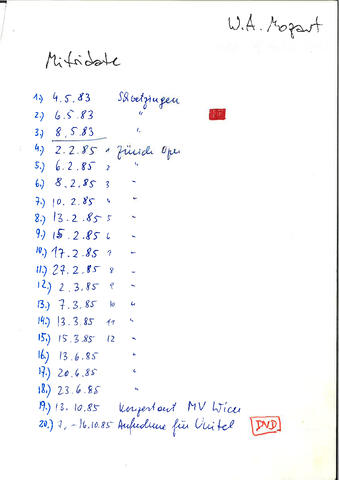 W. A. Mozart
Mitridate
1.) 4.5.83 Schwetzingen
2.) 6.5.83 "
3.) 8.5.83 "
4.) 2.2.85 1 Zürich Oper
5.) 6.2.85 2 "
6.) 8.2.85 3 "
7.) 10.2.85 4 "
8.) 13.2.85 5 "
9.) 15.2.85 6 "
10.) 17.2.85 7 "
11.) 27.2.85 8 "
12.) 2.3.85 9 "
13.) 7.3.85 10 "
14.) 13.3.85 11 "
15.) 15.3.85 12 "
16.) 13.6.85 "
17.) 20.6.85 "
18.) 23.6.85 "
19.) 13.10.85 Konzertant MV Wien
20.) 7.-16.10.85 Aufnahme für Unitel DVD